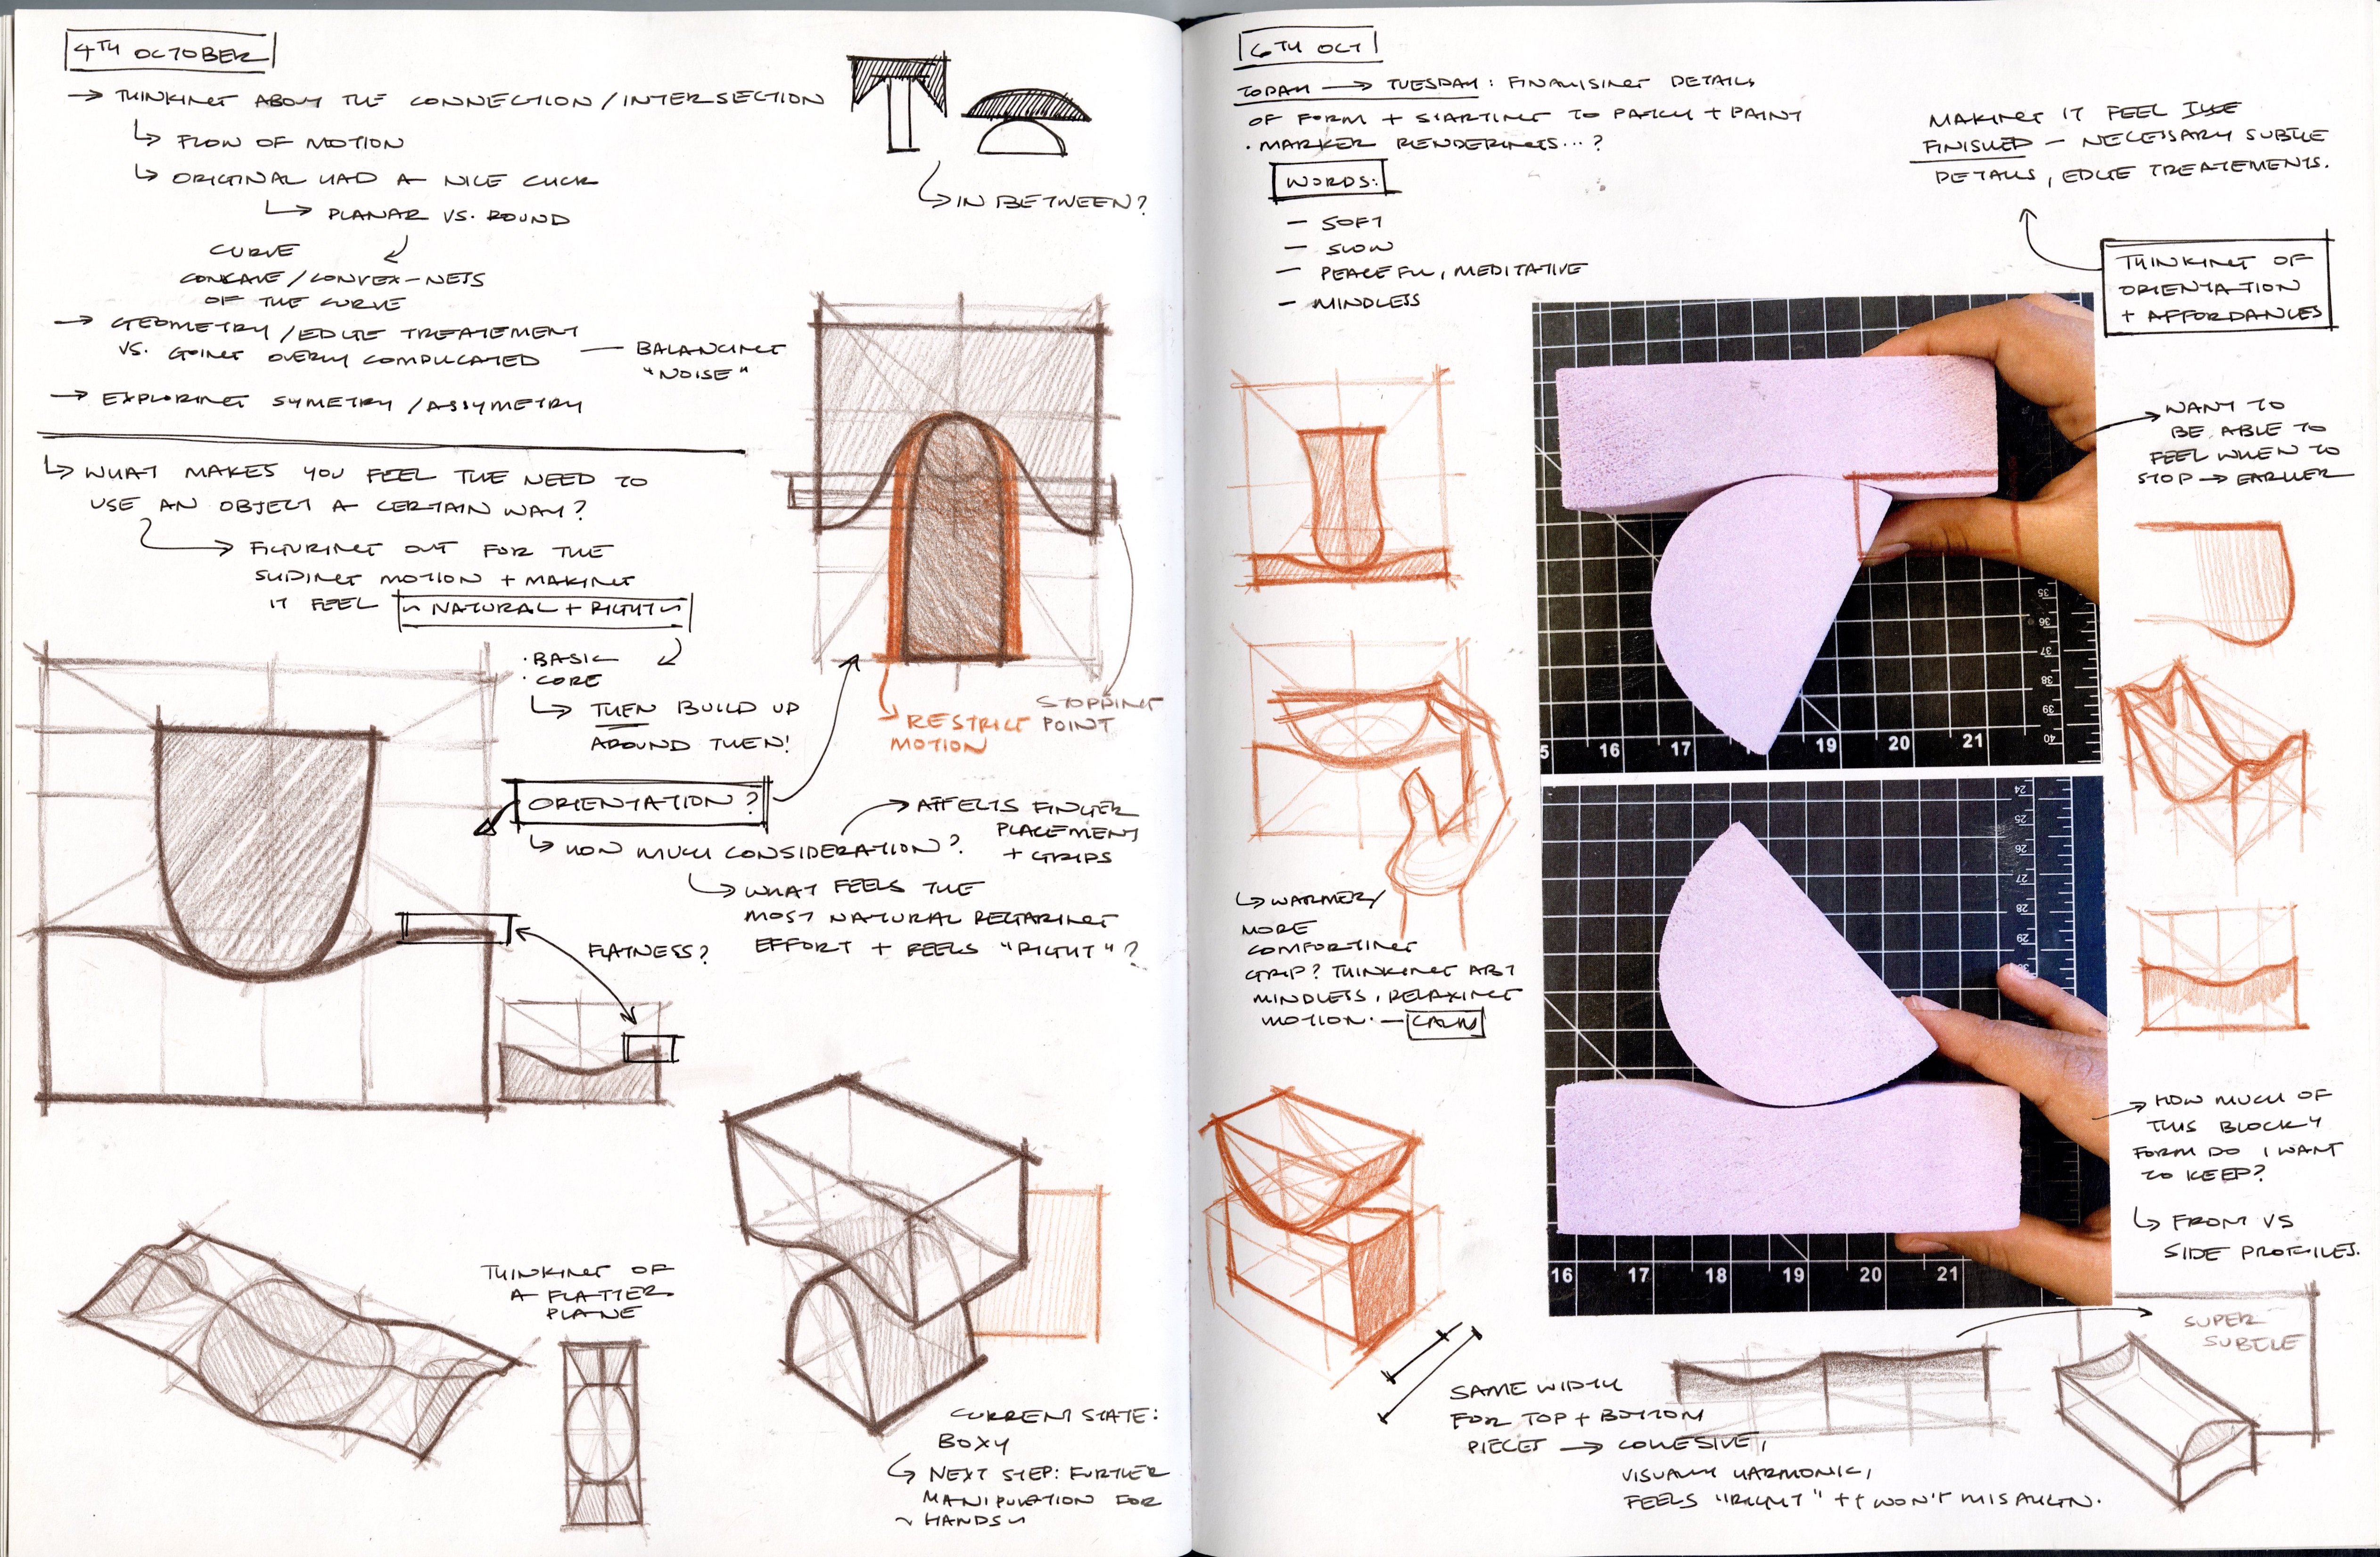 4TH OCTOBER
→ THINKING ABOUT THE CONNECTION/INTERSECTION
↳ FLOW OF MOTION
↳ ORIGINAL HAD A NICE CLICK
↳ PLANAR VS. ROUND
CURVE
CONCAVE/CONVEX-NESS
OF THE CURVE
→ GEOMETRY/EDGE TREATEMENT
VS. GOING OVERLY COMPLICATED
— BALANCING
"NOISE"
→ EXPLORING SYMETRY/ASSYMETRY
↳ IN BETWEEN?
↳ WHAT MAKES YOU FEEL THE NEED TO
USE AN OBJECT A CERTAIN WAY?
→ FIGURING OUT FOR THE
SLIDING MOTION + MAKING
IT FEEL ~ NATURAL + RIGHT ~
· BASIC
· CORE
↳ THEN BUILD UP
AROUND THEN!
RESTRICT
MOTION
STOPPING
POINT
ORIENTATION?
↳ HOW MUCH CONSIDERATION?
→ AFFECTS FINGER
PLACEMENT
+ GRIPS
↳ WHAT FEELS THE
MOST NATURAL REGARING
EFFORT + FEELS "RIGHT"?
FLATNESS?
THINKING OF
A FLATTER
PLANE
CURRENT STATE:
BOXY
↳ NEXT STEP: FURTHER
MANIPULATION FOR
~ HANDS ~
6TH OCT
TODAY → TUESDAY: FINALISING DETAILS
OF FORM + STARTING TO PATCH + PAINT
· MARKER RENDERINGS...?
WORDS:
— SOFT
— SLOW
— PEACEFUL, MEDITATIVE
— MINDLESS
MAKING IT FEEL
FINISHED — NECESSARY SUBTLE
DETAILS, EDGE TREATEMENTS.
THINKING OF
ORIENTATION
+ AFFORDANCES
→ WANT TO
BE ABLE TO
FEEL WHEN TO
STOP → EARLIER
35
36
37
38
39
40
5 16 17 18 19 20 21
↳ WARMER/
MORE
COMFORTING
GRIP? THINKING ABT
MINDLESS, RELAXING
MOTION. — CALM
24
25
26
27
28
29
16 17 18 19 20 21
→ HOW MUCH OF
THIS BLOCKY
FORM DO I WANT
TO KEEP?
↳ FRONT VS
SIDE PROFILES.
SUPER
SUBTLE
SAME WIDTH
FOR TOP + BOTTOM
PIECES → COHESIVE,
VISUALLY HARMONIC,
FEELS "RIGHT" ++ WON'T MISALIGN.